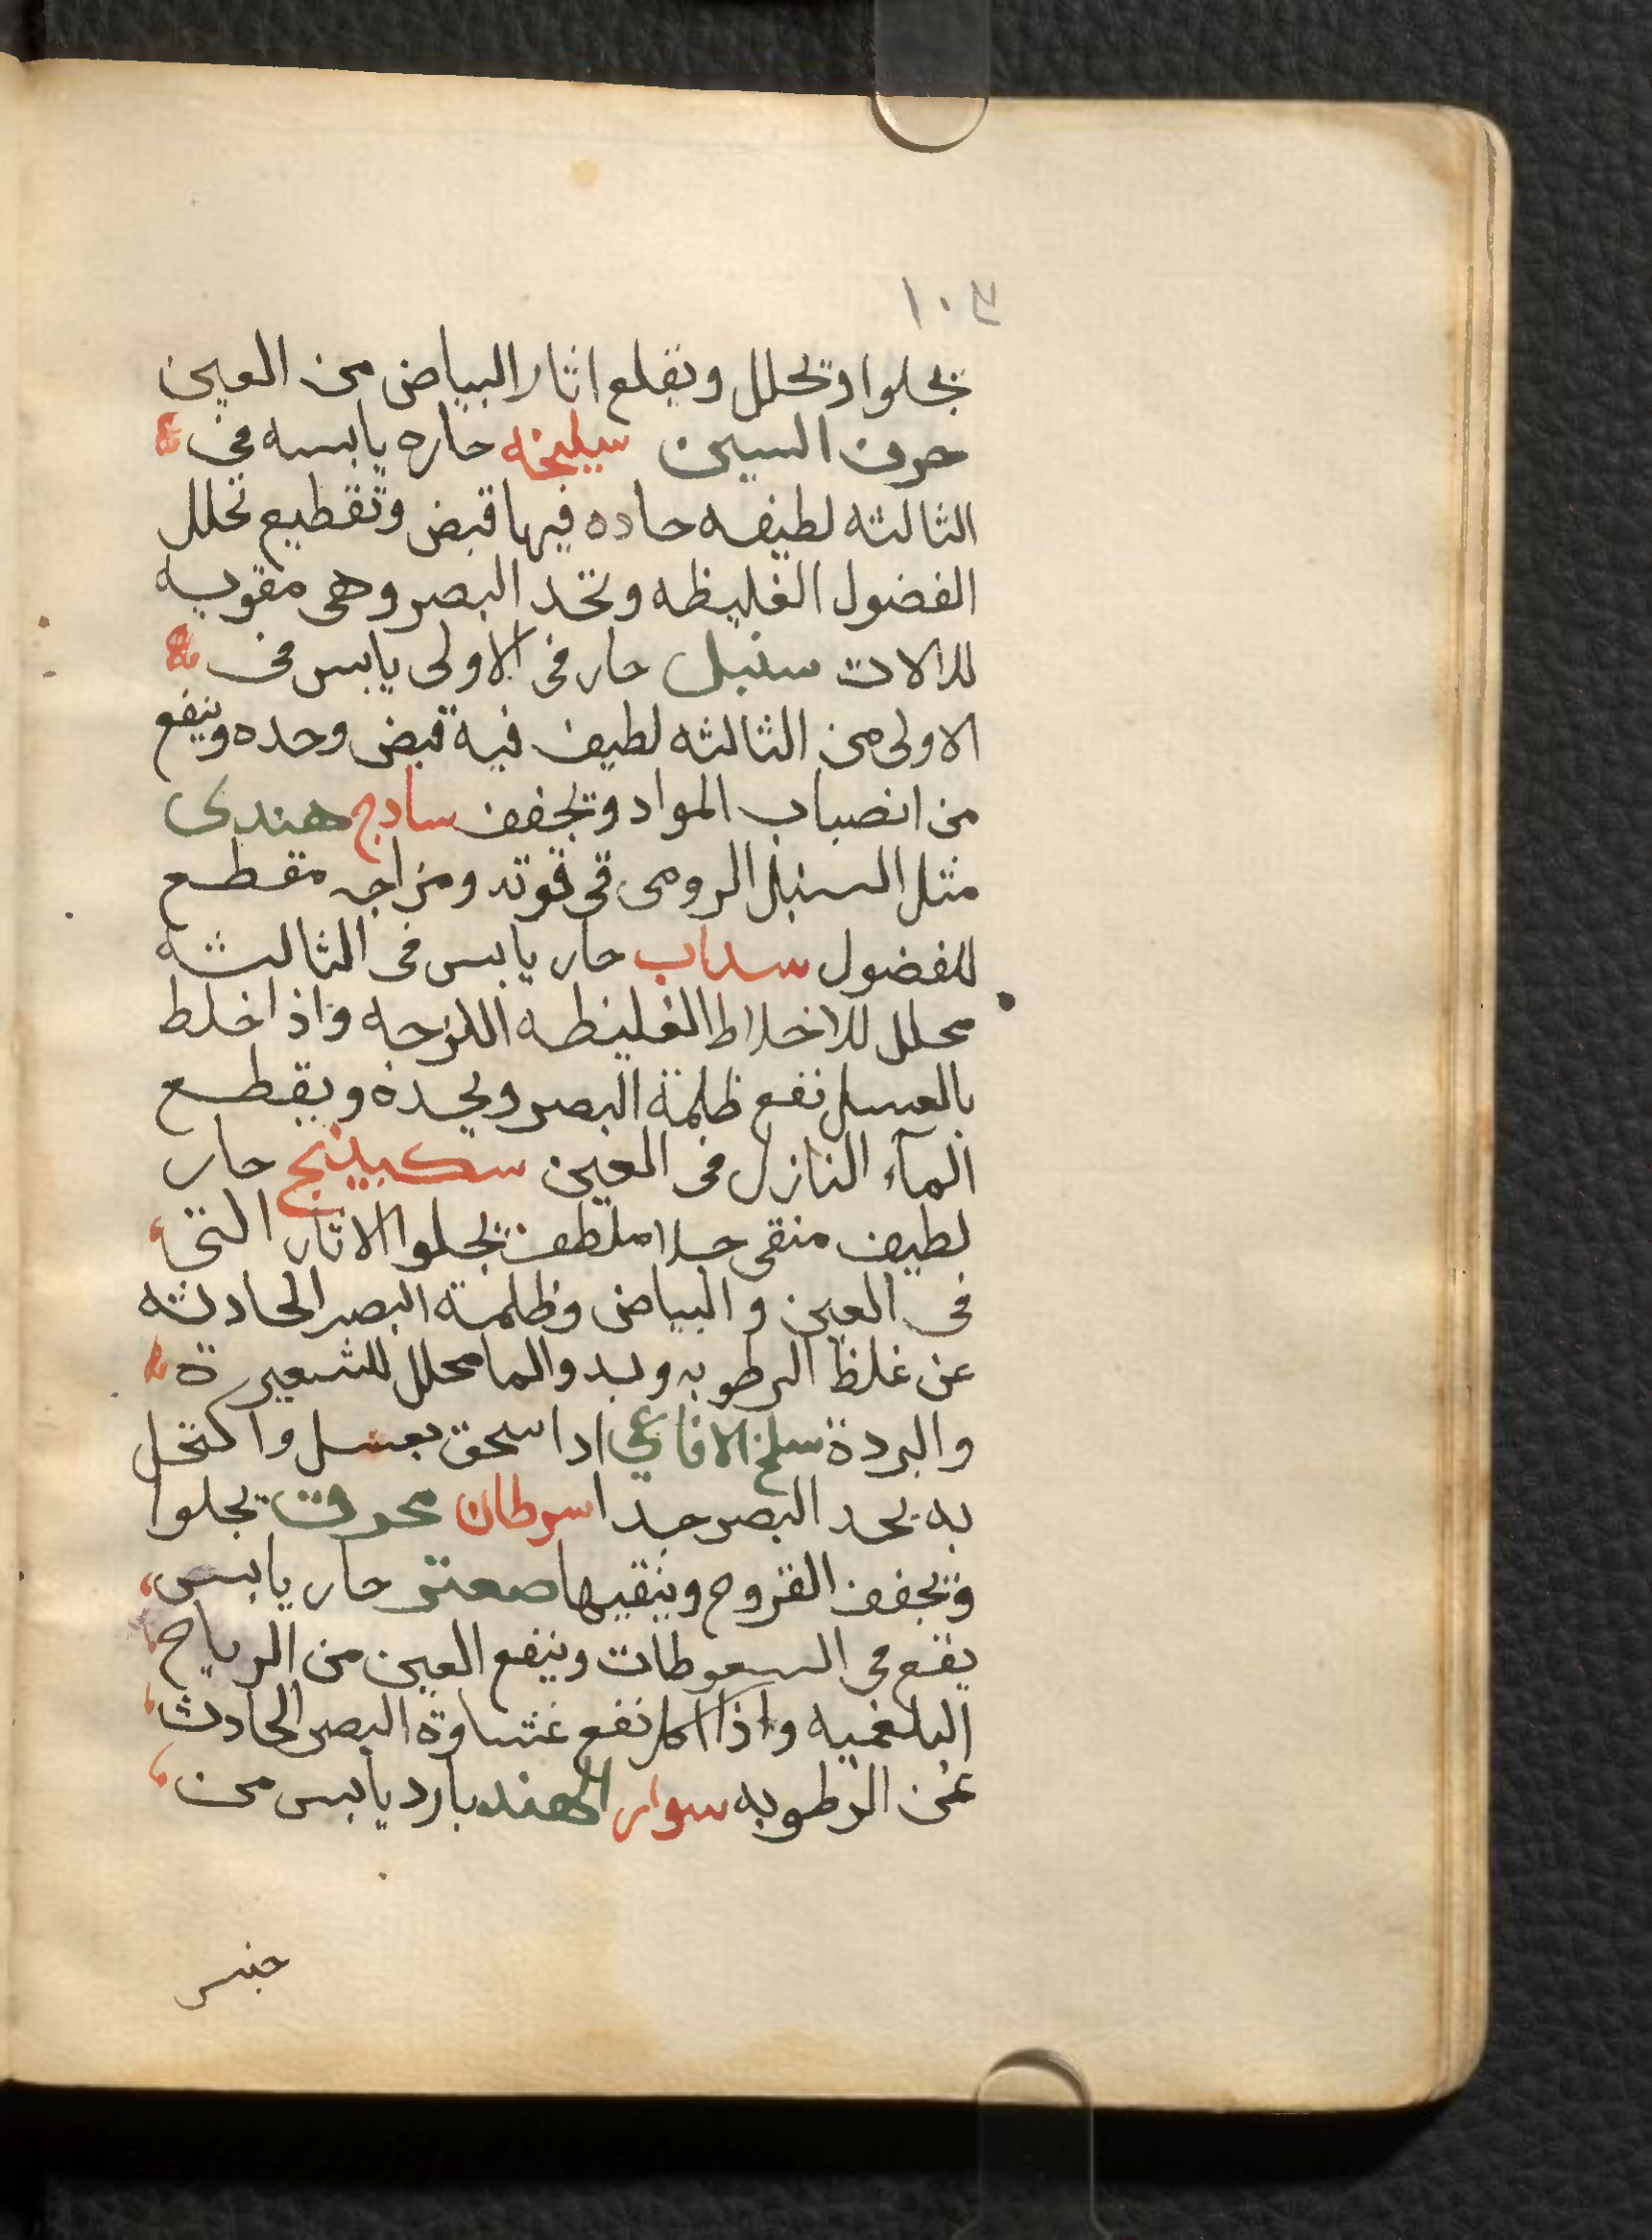 ١٠٣
يجلوا وتحلل ويقلع اثار البياض من العين
حرف السين سيليخه حاره يابسه في
الثالثه لطيفه حاده فيها قبض وتقطيع تحلل
الفضول الغليظه وتحد البصر وهي مقويه
للالات سنبل حار في الاولى يابس في
الاولى من الثالثه لطيف فيه قبض وحده وينفع
من انصباب المواد وتجفف سادج هندى
مثل السنبل الرومى في قوته ومزاجه مقطع
للفضول سداب حار يابس في الثالثه
محلل للاخلاط الغليظه اللزجه واذا خلط
بالعسل نفع ظلمة البصر ويحده ويقطع
المآء النازل في العين سكبينج حار
لطيف منقى جلا ملطف يجلوا الاثار التى
في العين و البياض وظلمة البصر الحادثه
عن غلظ الرطوبه وبدو الما محلل للشعيرة
والبردة سلخ الافاعي اذا سحق بعسل واكتحل
به يحد البصر جدا سرطان محرق يجلوا
وتجفف القروح وينقيها صعتر حار يابس
يقع في السعوطات وينفع العين من الرياح
البلغميه واذا اكل نفع غشاوة البصر الحادث
عن الرطوبه سوار الهند بارد يابس من
جنس